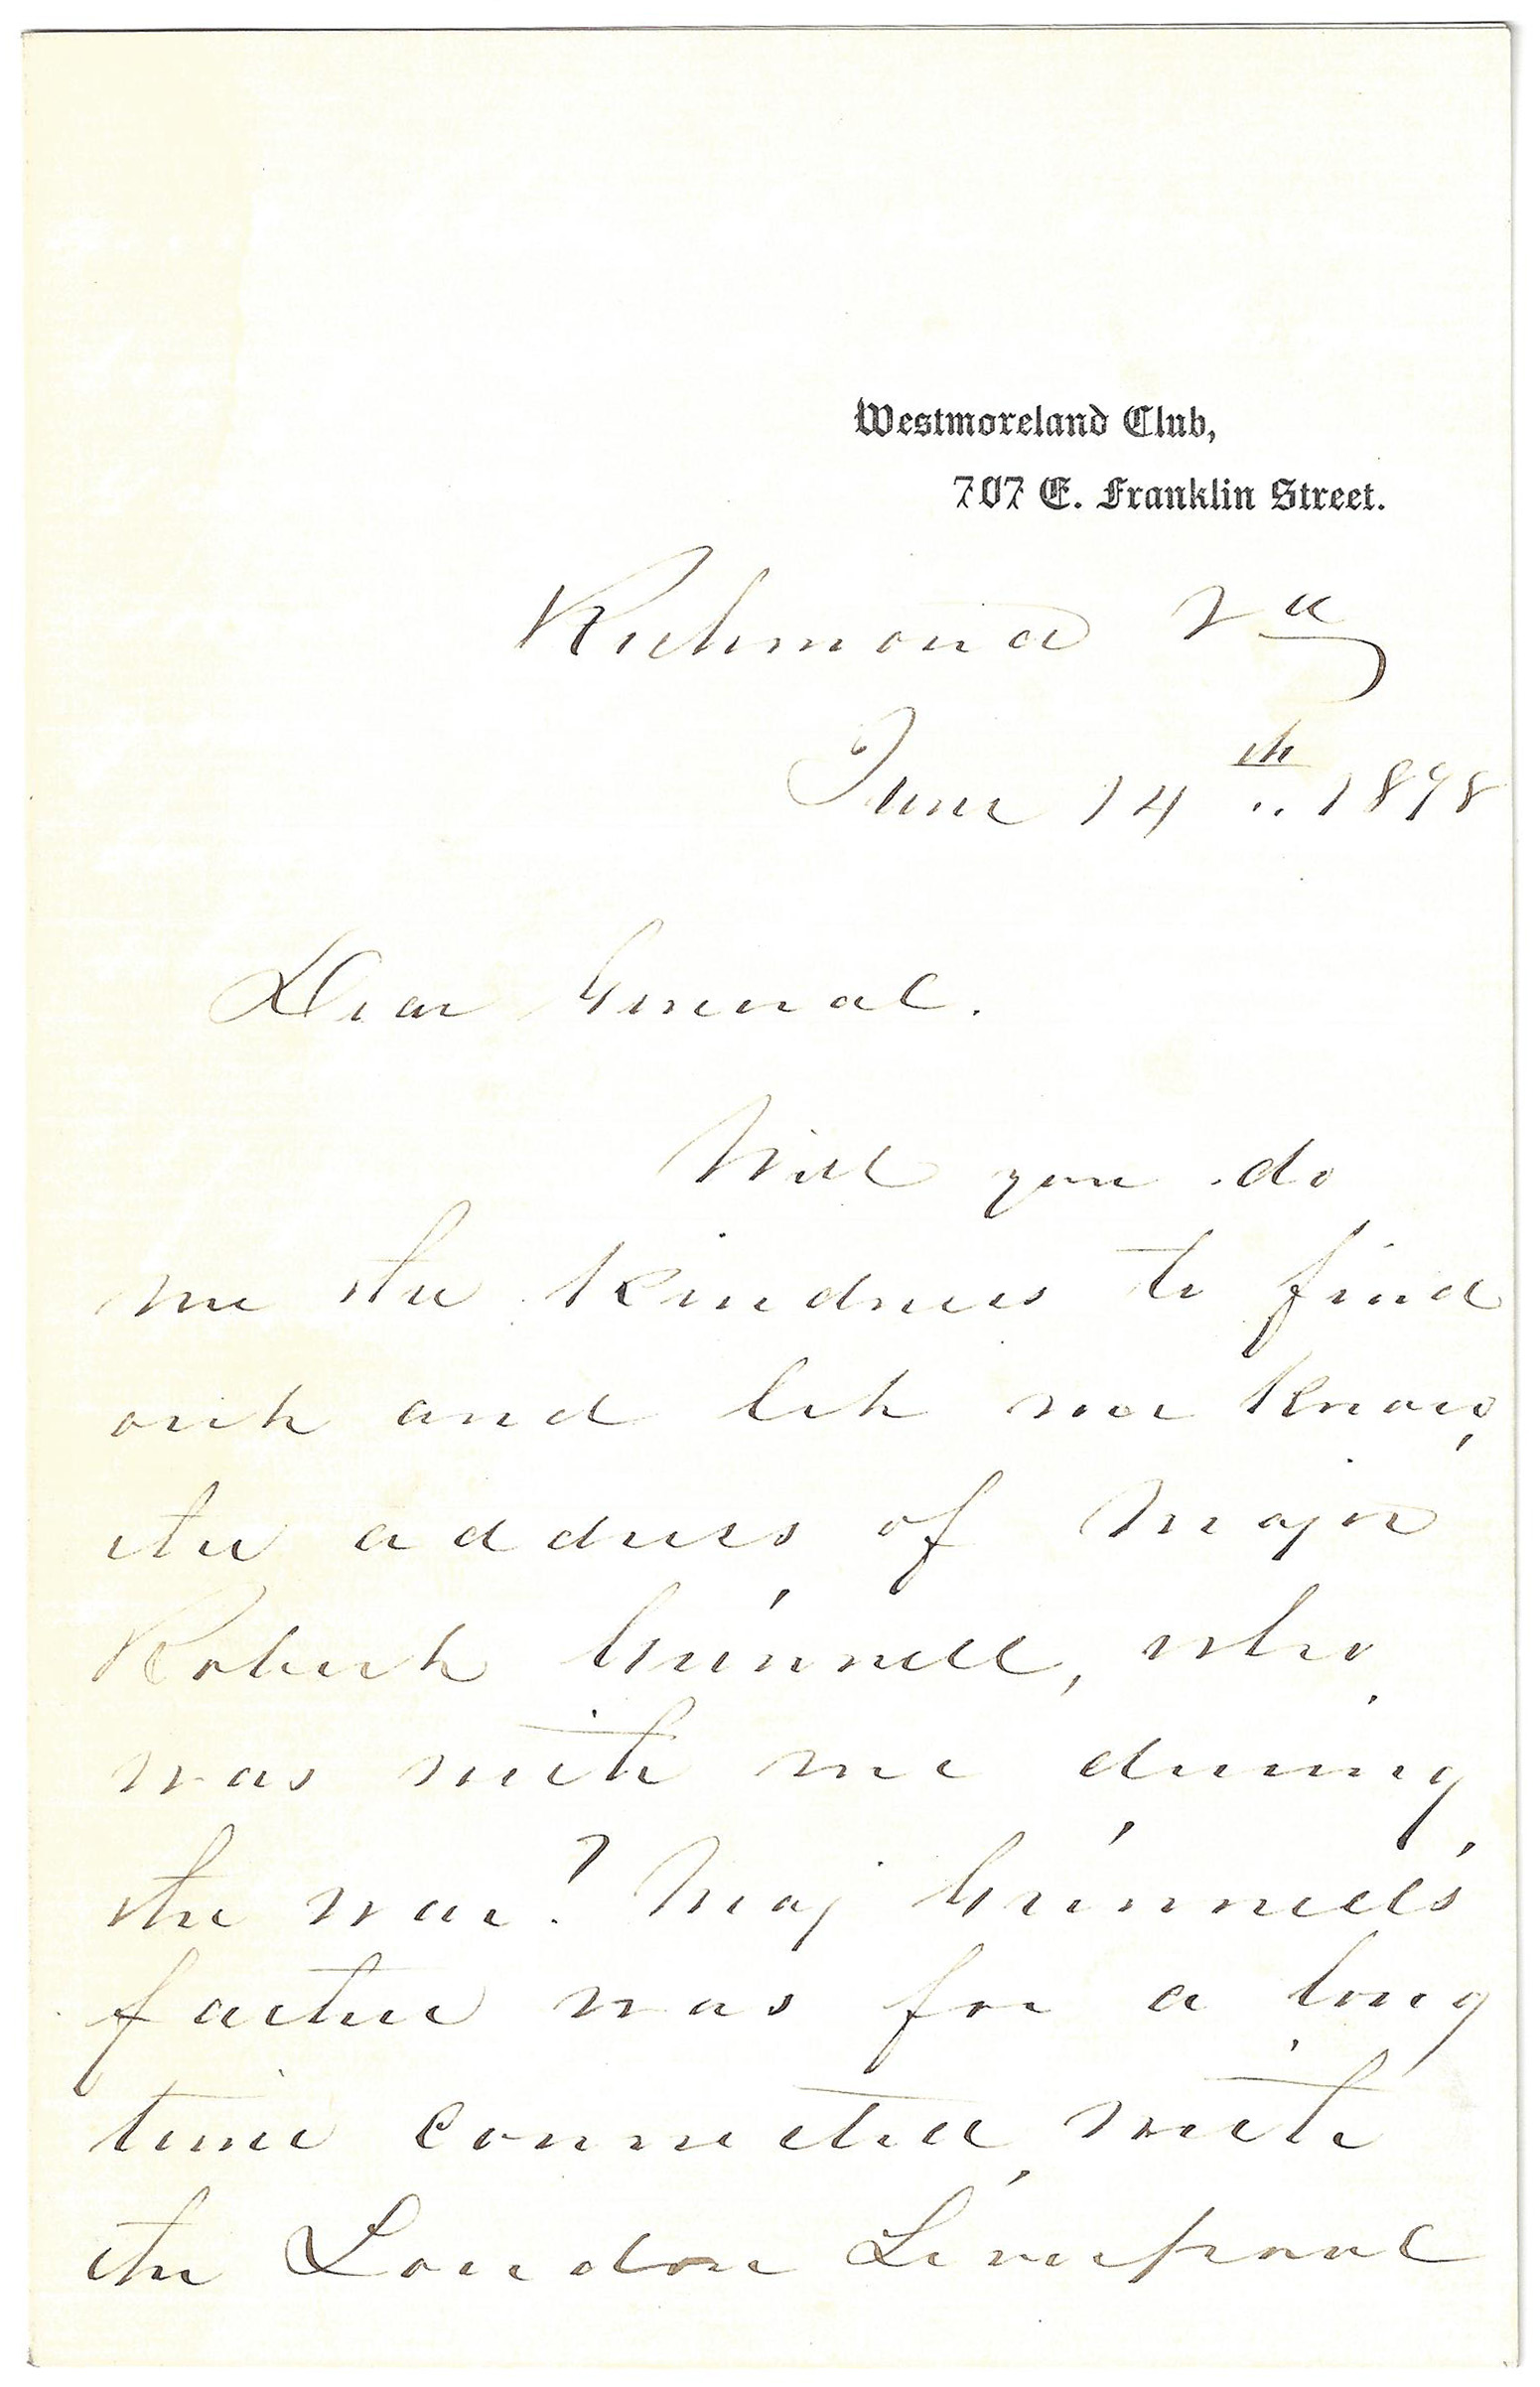 Westmoreland Club,
707 E. Franklin Street.
Richmond Va
June 14th 1898
Dear General.
Will you do
me the kindness to find
out and let me know
the address of Major
Robert Grinnell, who
was with me during
the war? Maj Grinnell's
father was for a long
time connected with
the London Liverpool